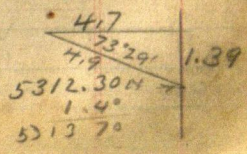 4.7
73°29'
4.9
1.39
5312.30N
1.4°
5313 7°